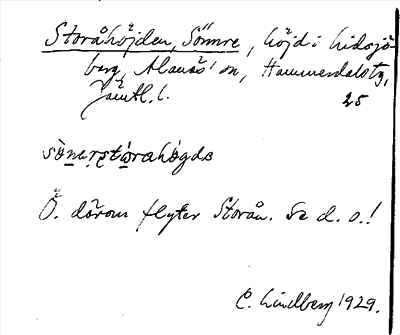 Storåhöjden, Sönnre, höjd i Lidsjö-
berg, Alanäs' sn, Hammerdals tg,
Jämtl. l. 25
Ö. därom flyter Storån. Se d. o.!
C. Lindberg 1929.